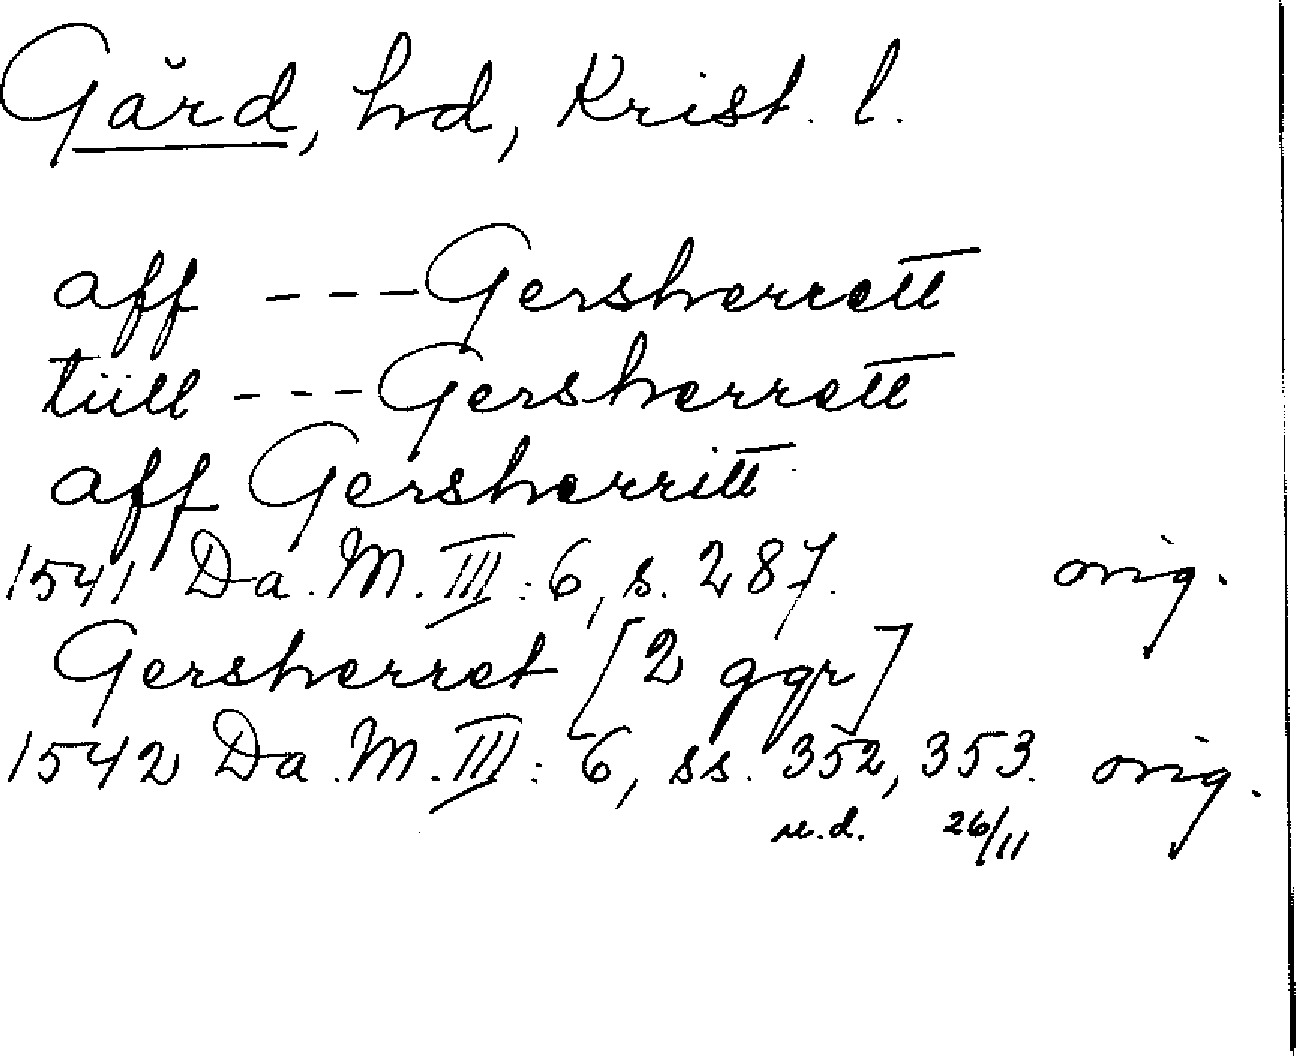 Gärd, hd, Krist. l.
aff ---Gersherrett
tüll ---Gersherrett
aff Gersherritt
1541 Da. M. III: 6, s. 287. orig.
Gersherret [2 ggr]
1542 Da. M. III: 6, ss. 352, 353. orig.
u.d. 26/11